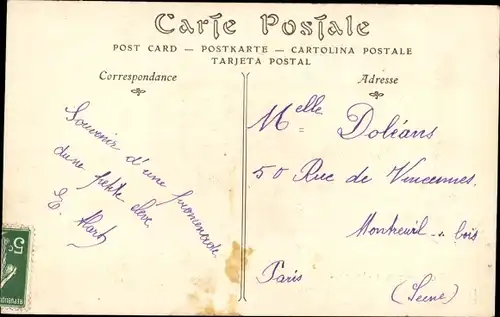 Carte Postale
POST CARD — POSTKARTE — CARTOLINA POSTALE
TARJETA POSTAL
Correspondance
Adresse
Souvenir d'une promenade
d'une petite élève
E.
Melle Doléans
50 Rue de Vincennes
Montreuil s. bois
Paris (Seine)
5c